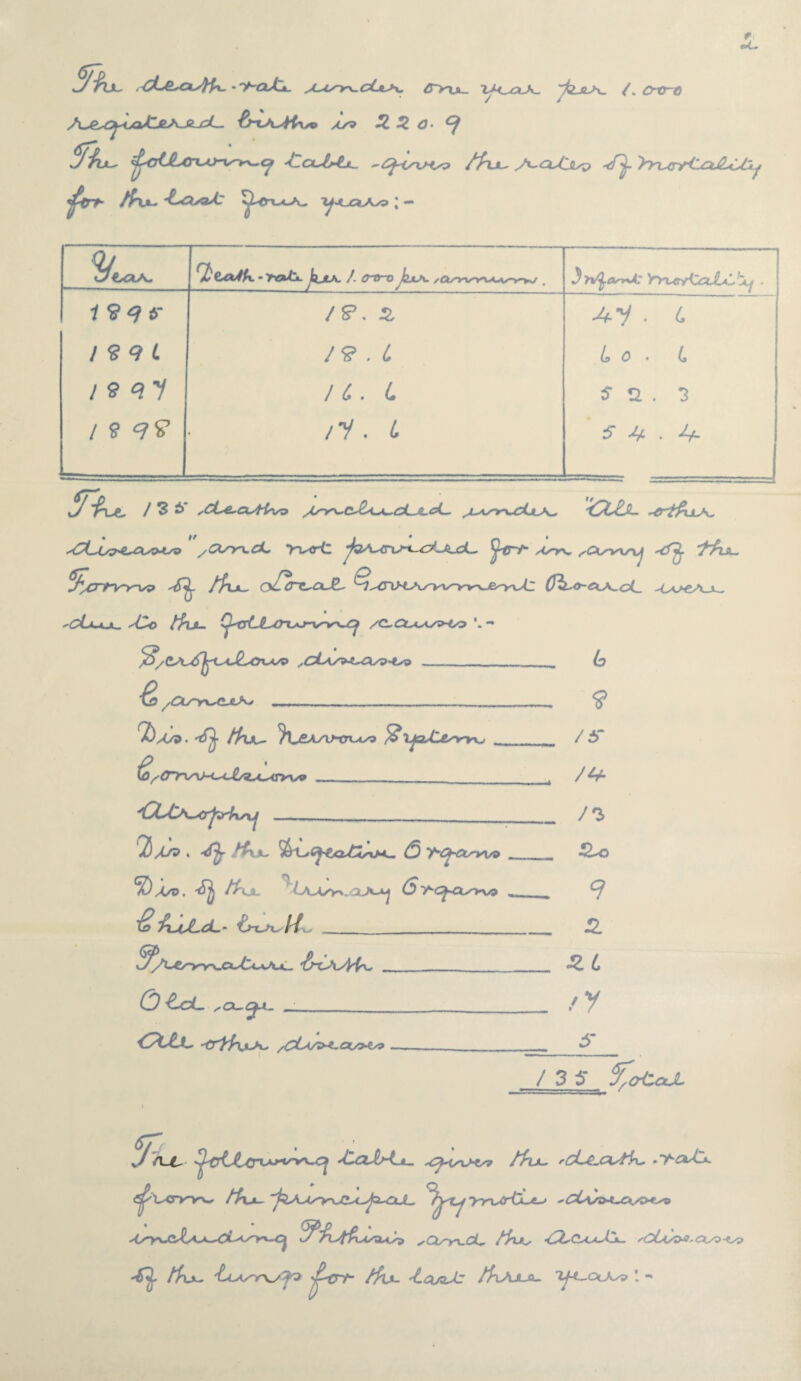 2
The death-rate under one year per 1.000
registered births is 220.9
The following table gives the rates of mortality
for the last four years :-
Year. Death-rate per 1.000 per annum. Infant mortality.
1895 18.2 47.6
1896 18.6 60.6
1897 16.6 52.3
1898 17.6 54.4
The 135 deaths included under "All other
diseases" and not provided for in any of the
Forms of the Local Government Board were
due to the following causes :-
Scrofulous diseases 6
Cancer 8
Dis. of the Nervous System 15
Convulsions 14
Atrophy 13
Dis. of the Digestive Organs 20
Dis. of the Urinary Organs 9
Child-birth 2
Premature birth 26
Old age 17
All other diseases 5
135 Total
The following table gives the death-rate
from the principal Zymotic diseases
including Phthisis and the acute diseases
of the lungs for the last three years :-